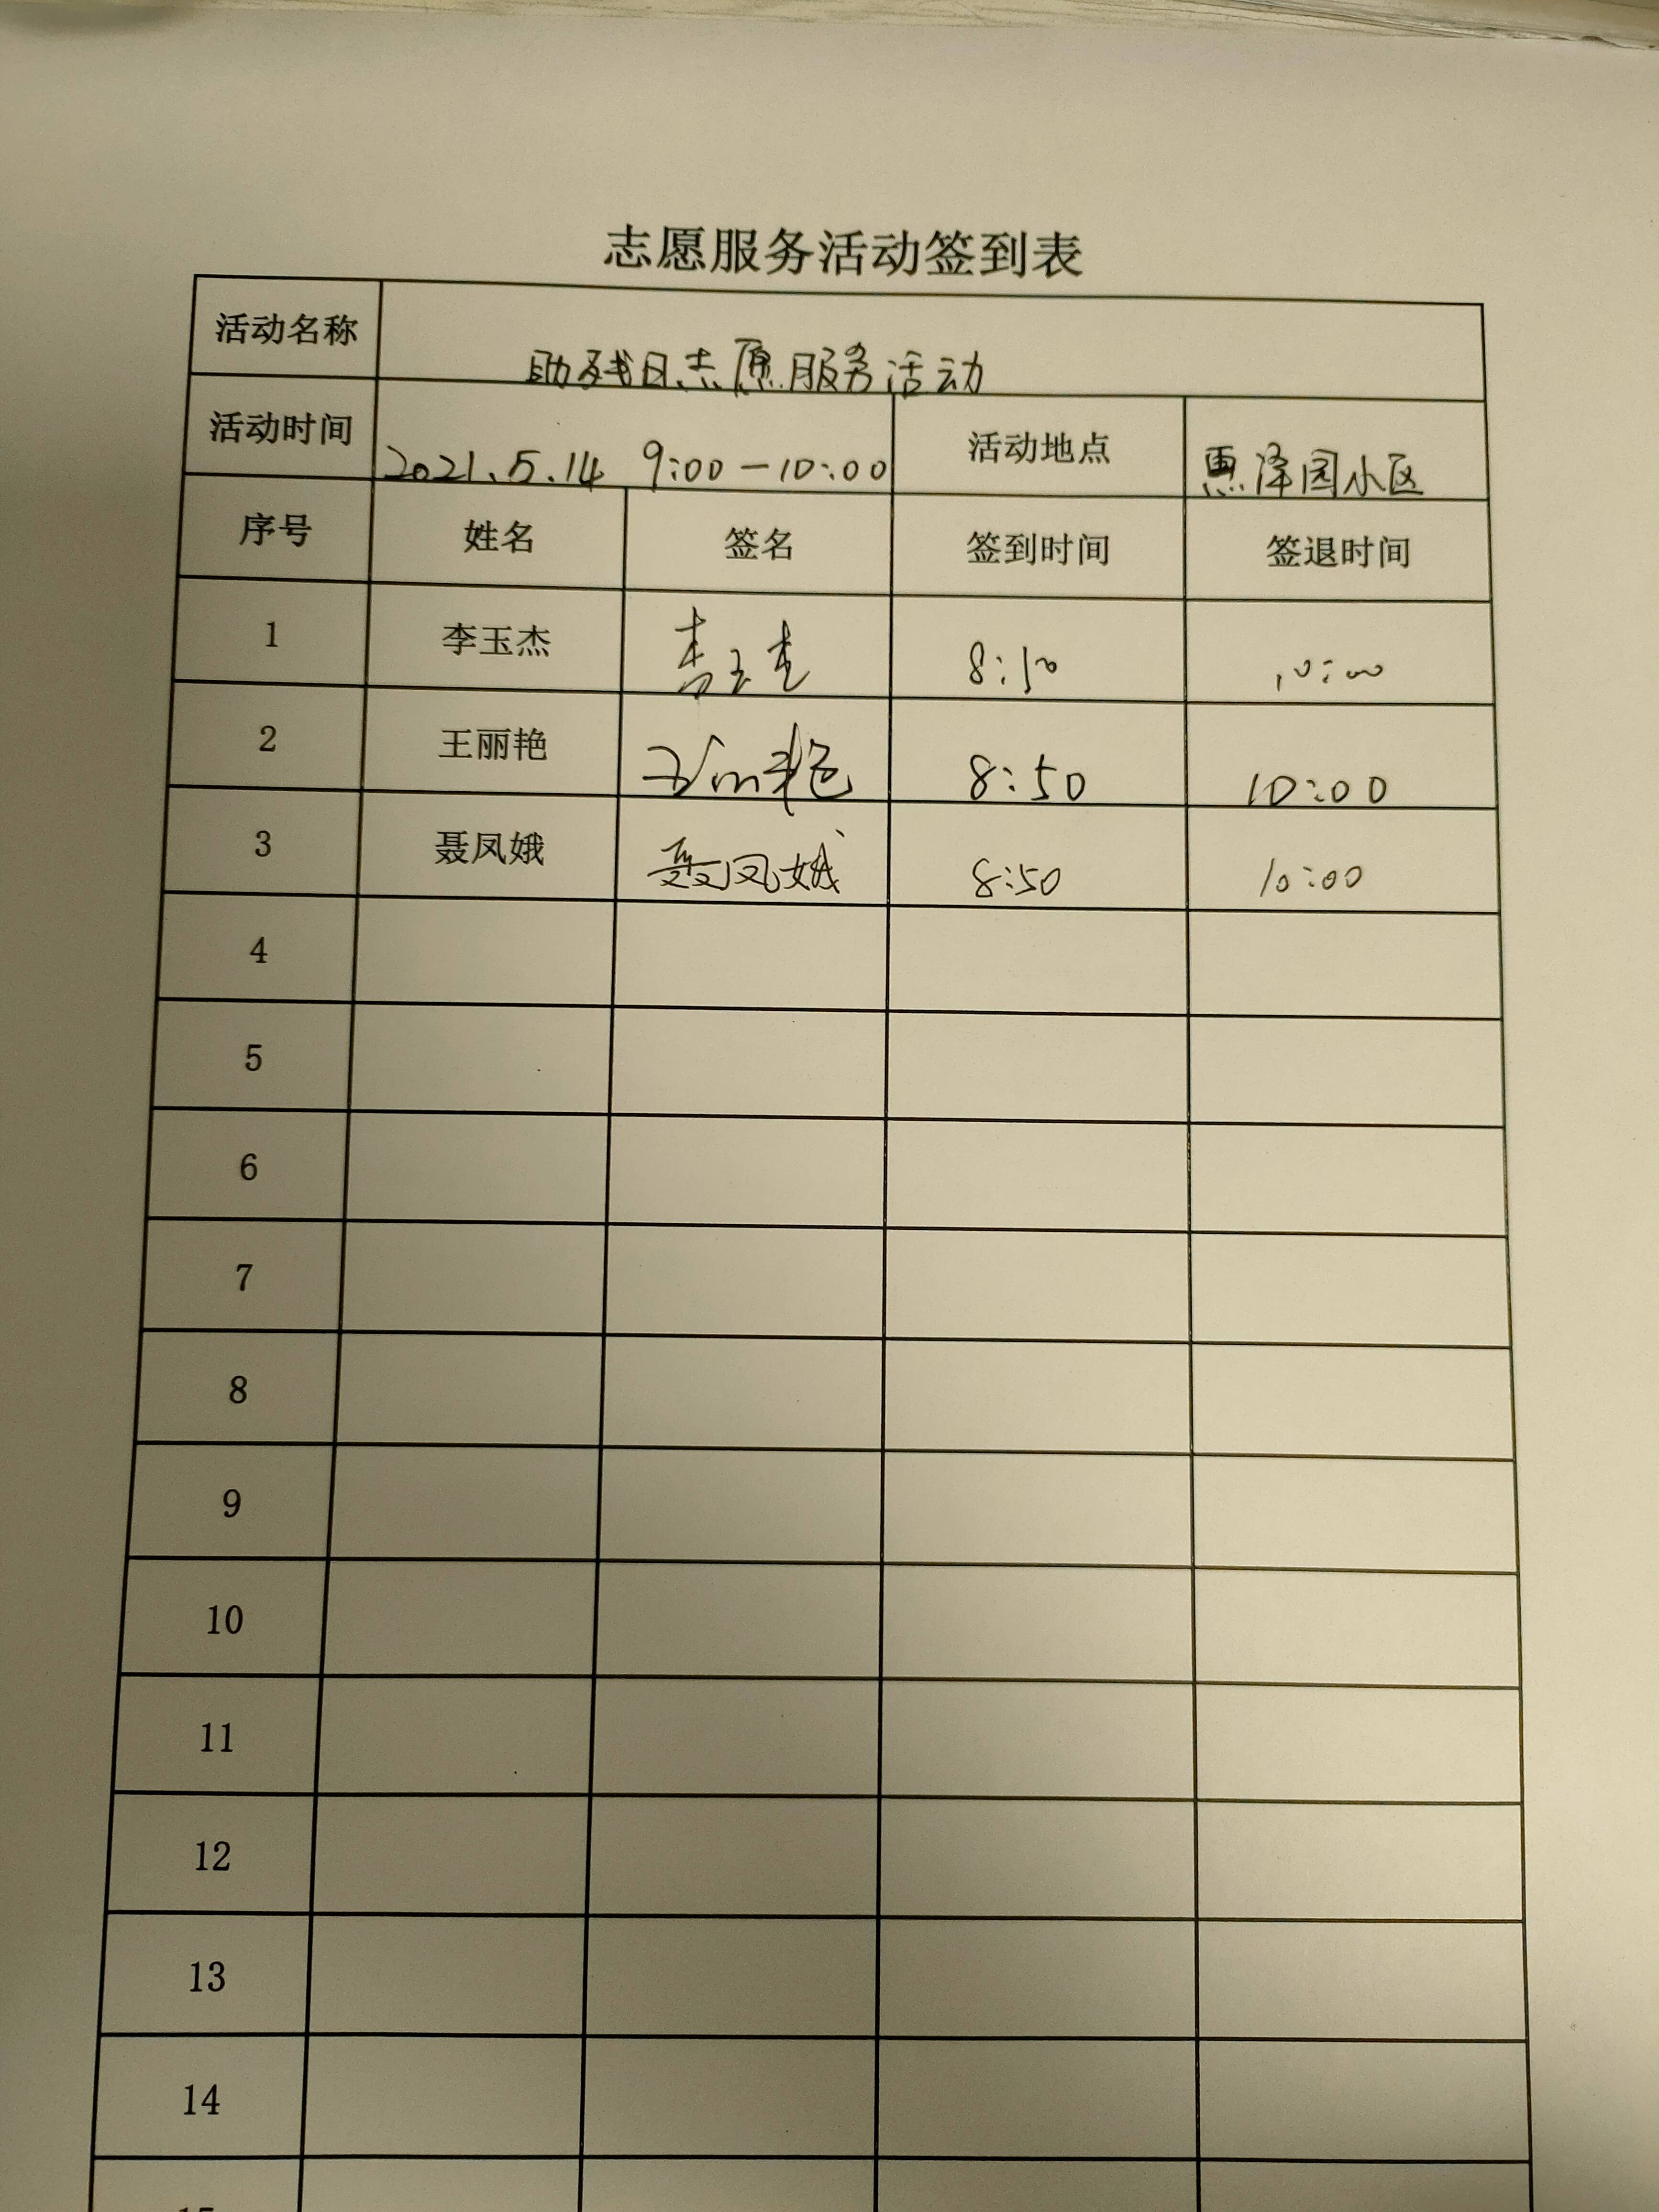 志愿服务活动签到表
活动名称 助残日志愿服务活动
活动时间 2021.5.14 9:00-10:00 活动地点 惠泽园小区
序号 姓名 签名 签到时间 签退时间
1 李玉杰 李玉杰 8:50 10:00
2 王丽艳 王丽艳 8:50 10:00
3 聂凤娥 聂凤娥 8:50 10:00
4
5
6
7
8
9
10
11
12
13
14
15